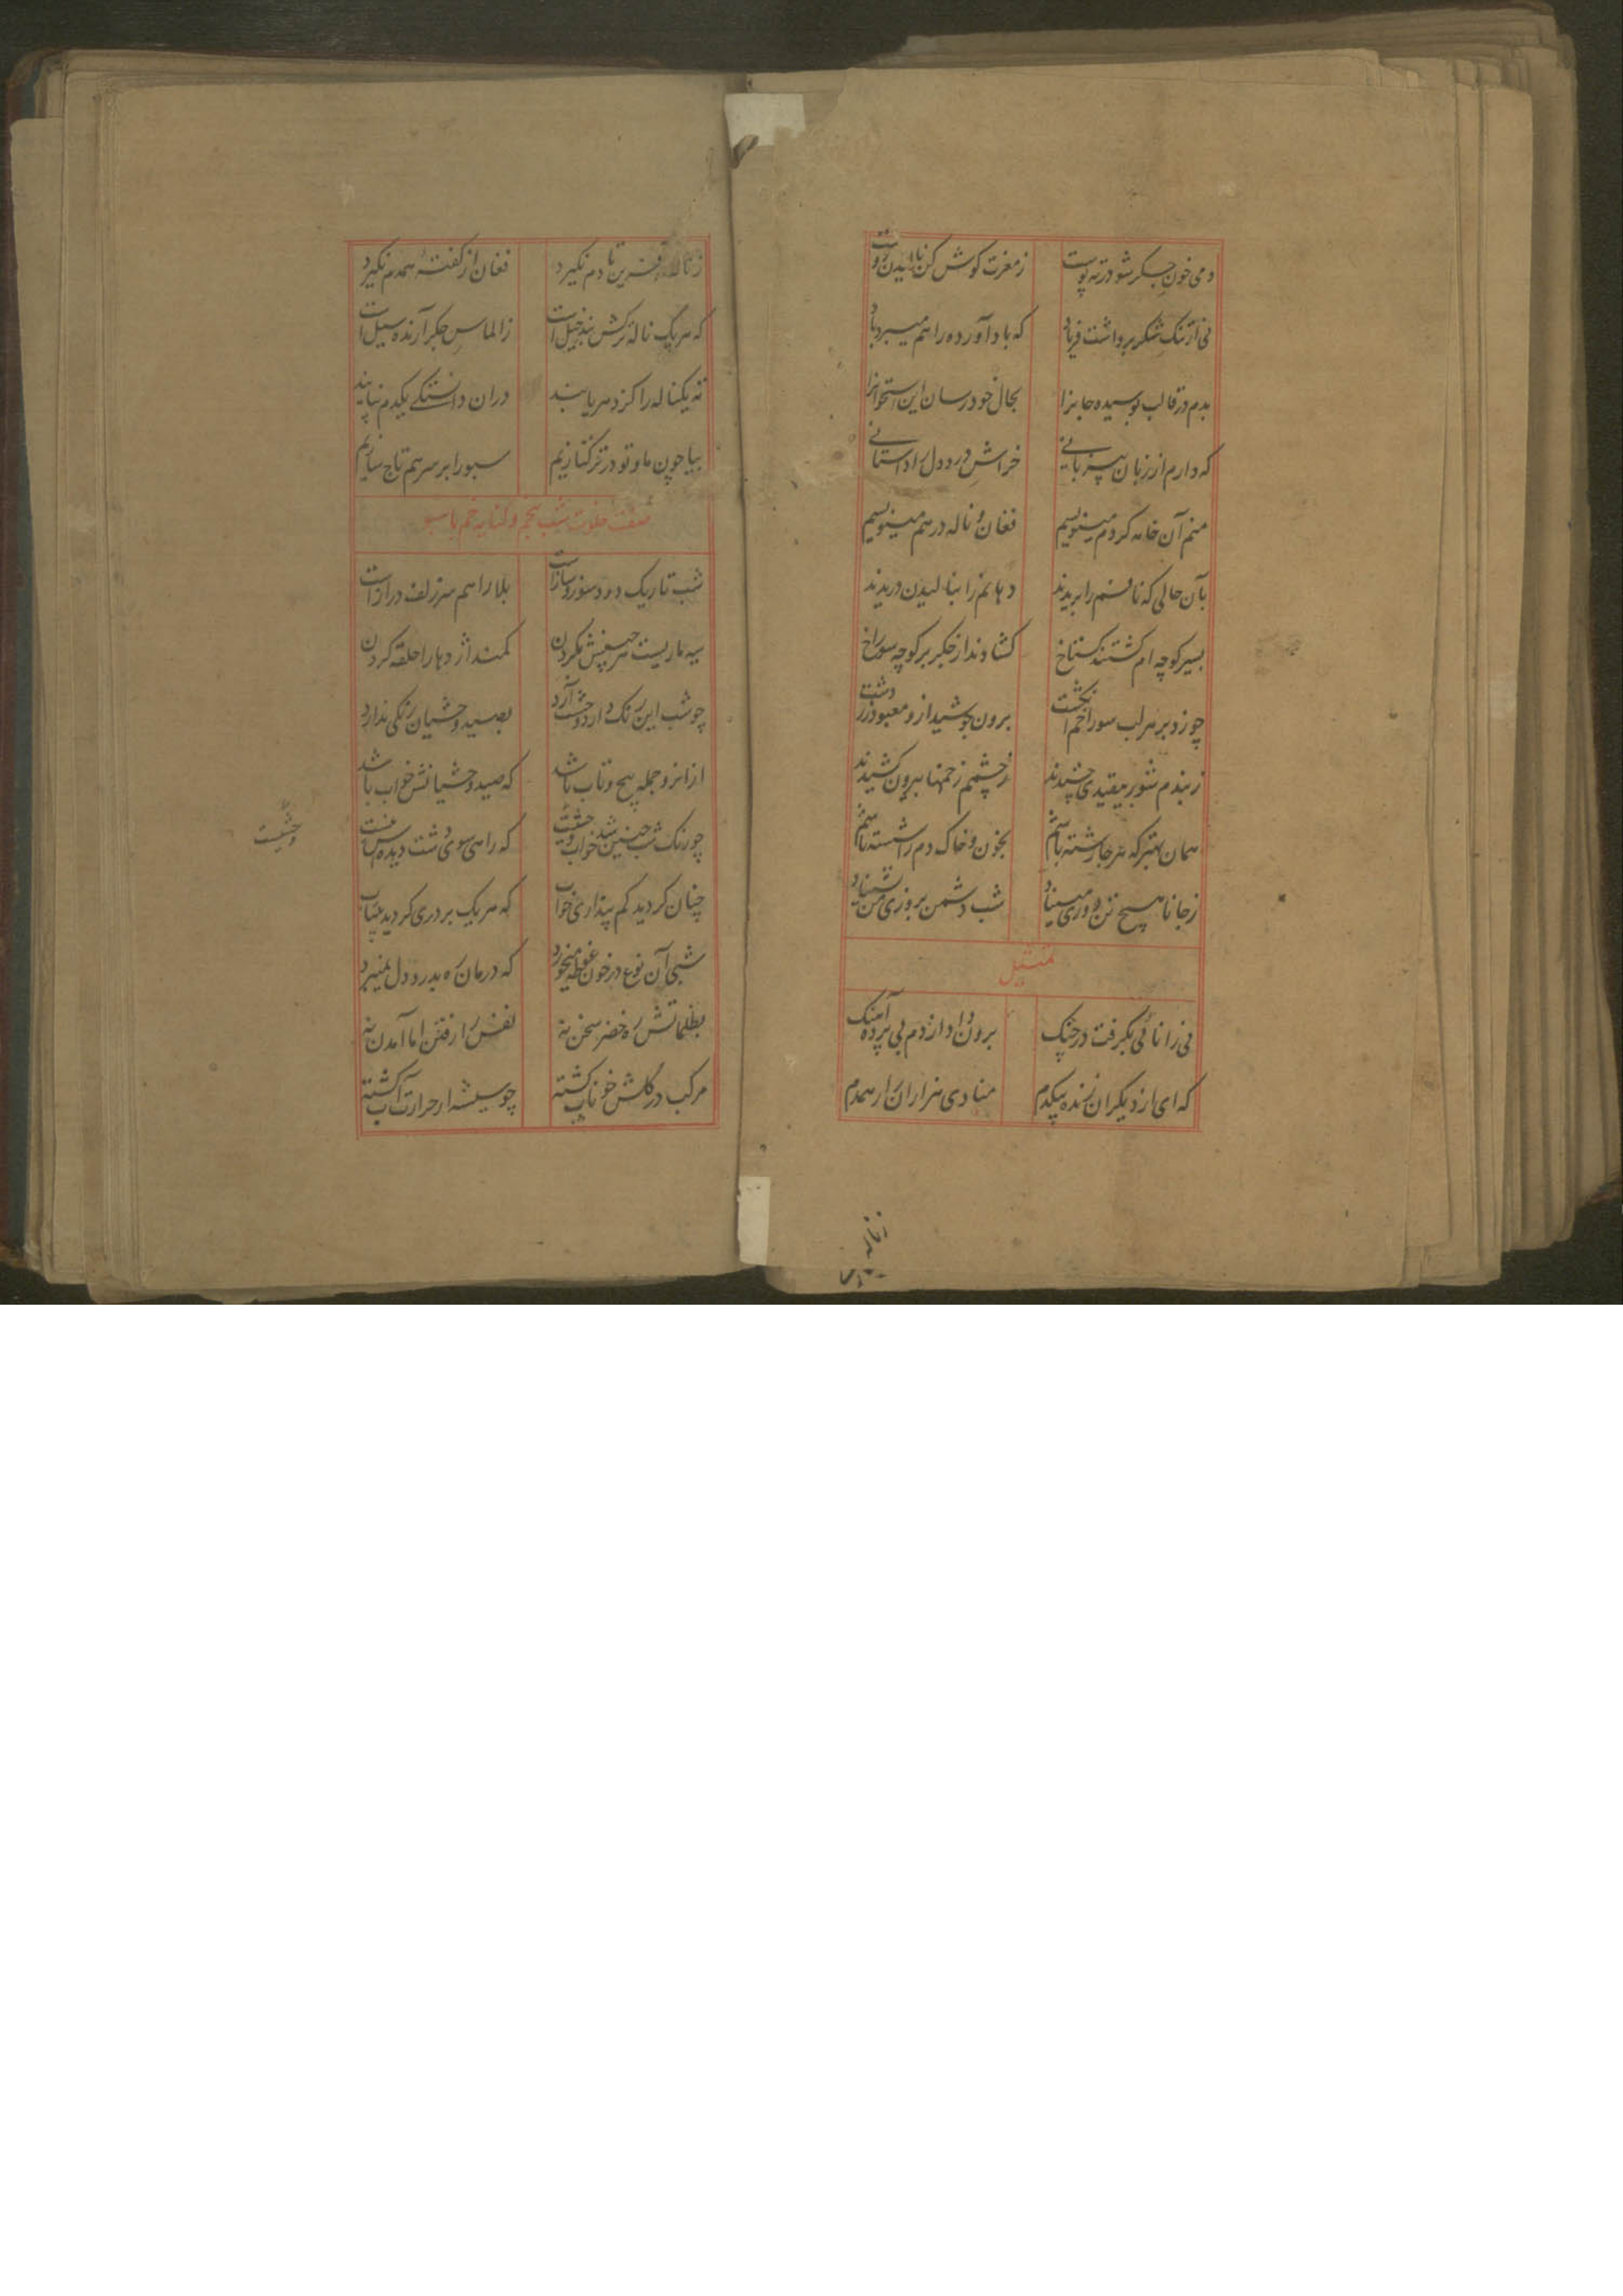 دمی خون جگر شو در ته پوست    ز مغزت گوش کن نالیدن دوست
نی از تنگ شکر برداشت فریاد    که باد آورده را هم میبرد باد
بدم در قالب پوسیده جانرا    بحال خود رسان این استخوانرا
که دارم از زبان بیزبانی    خراش درد دل را داستانی
منم آن خامه کز دم مینویسم    فغان و ناله در هم مینویسم
بآن حالی که نافم را بریدند    دهانم را بنالیدن دریدند
بسیر کوچه ام گشتند گستاخ    گشادند از جگر بر کوچه سوراخ
چو زد بر هر لب سوراخم انگشت    برون جوشید از و معبود زردشت
ز بندم شور بیقیدی چشیدند    ز چشمم زخمها بیرون کشیدند
همان بهتر که هر جا رشته باشم    بخون و خاک دم را شسته باشم
شب دشمن بروزی من
تمثیل
نی را نائی بگرفت در چنگ    برون داد از دم نی پرده آهنگ
که ای از دیگران زنده بیکدم    منادی هزاران را همدم
تا دم نگیرد    فغان از گفته همدم نگیرد
که هر یک ناله ترکش بند خیل است    ز الماس جگر آرنده سیل است
نه یکناله را کز دم ربایند    در آن دلتنگی یکدم نپایند
بیا چون ما و تو در ترکتازیم    سبو را بر سر هم تاج سازیم
صفت خلوت شب و کنایه خم با سبو
شب تاریک درد و سوز و ساز است    بلا را هم سر زلف دراز است
سیه ماریست هر چینش بگردن    کمند اژدها را حلقه کردن
چو شب این رنگ دارد وحشت آرد    بصید وحشیان رنگی ندارد
از انرو جمله پیچ و تاب باشد    که صید وحشیانش خواب باشد
چو رنگ شب چنین شد خواب وحشیست    که راهی سوی دشت دیده اش نیست
وحشیست
چنان گردید گم پنداری خواب    که هر یک بر دری گردید بیتاب
شبی آن نوع در خون غوطه میخورد    که درمان ره بدرد دل نمیبرد
بظلماتش ره خضر سخن نه    نفس را رفتن اما آمدن نه
مرکب در گلش خوناب گشته    چو شیشه از حرارت آب گشته